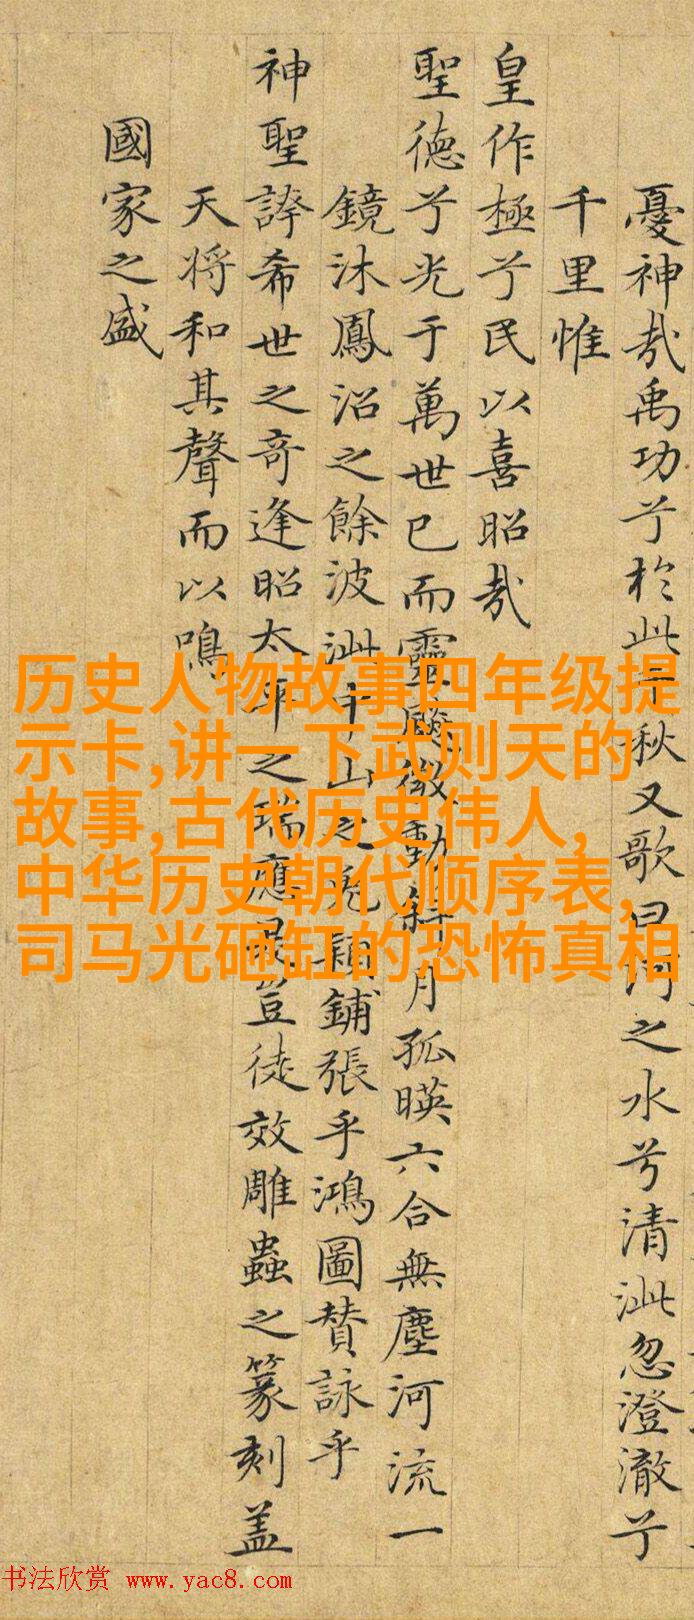 憂神哉禹功兮於此千秋又歌曰河之水兮清泚忽澄澈兮
千里惟
皇作極兮民以喜昭哉
聖德兮光于萬世已而靈飈微動斜月孤暎六合無塵河流一
鏡沐鳳沼之餘波泚中山之兎穎鋪張乎鴻圖賛詠乎
神聖誇希世之奇逢昭太平之瑞應豈徒效雕蟲之篆刻盖
天将和其聲而以鳴
國家之盛
历史人物故事四年级提
示卡,讲一下武则天的
故事,古代历史伟人,
中华历史朝代顺序表,
司马光砸缸的恐怖真相
书法欣赏 www.yac8.com